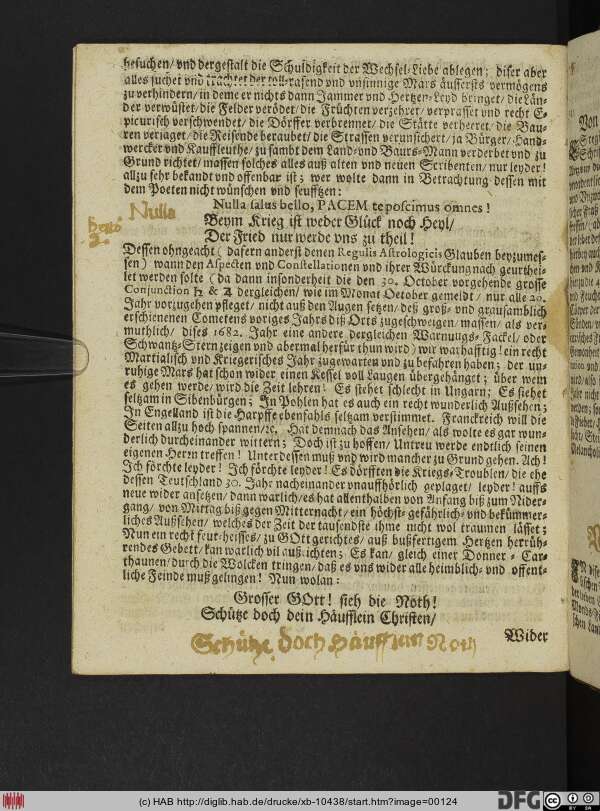 besuchen/ vnd dergestalt die Schuldigkeit der Wechsel-Liebe ablegen; diser aber
alles suchet vnd trachtet der toll-rasend vnd vnsinnige Mars äussersts vermögens
zu verhindern/ in deme er nichts dann Jammer vnd Hertzen-Leyd bringet/ die Län-
der verwüstet/ die Felder verödet/ die Früchten verzehret/ verprasset vnd recht E-
picurisch verschwendet/ die Dörffer verbrennet/ die Stätte verheeret/ die Bau-
ren verjaget/ die Reisende beraubet/ die Strassen verunsichert/ ja Bürger/ Hand-
wercker vnd Kauffleuthe/ zu sambt dem Land- vnd Baurs-Mann verderbet vnd zu
Grund richtet/ massen solches alles auß alten vnd neuen Scribenten/ nur leyder!
allzu sehr bekandt vnd offenbar ist; wer wolte dann in Betrachtung dessen mit
dem Poeten nicht wünschen vnd seufftzen:
Nulla salus bello, PACEM te poscimus omnes!
Nulla
Beym Krieg ist weder Glück noch Heyl/
Der Fried nur werde vns zu theil!
Dessen ohngeacht (dafern anderst denen Regulis Astrologicis Glauben beyzumes-
sen) wann den Aspecten vnd Constellationen vnd ihrer Würckung nach geurthei-
let werden solte (da dann insonderheit die den 30. October vorgehende grosse
Conjunction ♄ & ♃ dergleichen/ wie im Monat October gemeldt/ nur alle 20.
Jahr vorzugehen pfleget/ nicht auß den Augen setzen/ deß groß- vnd grausamblich
erschienenen Cometens voriges Jahrs diß Orts zugeschweigen/ massen/ als ver-
muthlich/ dises 1682. Jahr eine andere dergleichen Warnungs-Fackel/ oder
Schwantz-Stern zeigen vnd abermal herfür thun wird) wir warhafftig! ein recht
Martialisch vnd Kriegerisches Jahr zugewarten vnd zu befahren haben; der un-
ruhige Mars hat schon wider einen Kessel voll Laugen übergehänget; über wem
es gehen werde/ wird die Zeit lehren! Es stehet schlecht in Ungarn; Es siehet
seltzam in Sibenbürgen; In Pohlen hat es auch ein recht wunderlich Außsehen;
In Engelland ist die Harpffe ebenfahls seltzam verstimmet. Franckreich will die
Seiten allzu hoch spannen/ ꝛc. Hat demnach das Ansehen/ als wolte es gar wun-
derlich durcheinander wittern; Doch ist zu hoffen/ Untreu werde endtlich seinen
eigenen Herrn treffen! Unterdessen muß vnd wird mancher zu Grund gehen. Ach!
Ich förchte leyder! Ich förchte leyder! Es dörfften die Kriegs-Troublen/ die ehe
dessen Teutschland 30. Jahr nacheinander vnauffhörlich geplaget/ leyder! auffs
neue wider ansetzen/ dann warlich/ es hat allenthalben von Anfang biß zum Nider-
gang/ von Mittag biß gegen Mitternacht/ ein höchst-gefährlich- vnd bekümmer-
liches Außsehen/ welches der Zeit der tausendste ihme nicht wol traumen lässet;
Nun ein recht feur-heisses/ zu GOtt gerichtes/ auß bußfertigem Hertzen herrüh-
rendes Gebett/ kan warlich vil außrichten; Es kan/ gleich einer Donner-Car-
thaunen/ durch die Wolcken tringen/ daß es vns wider alle heimblich- vnd offent-
liche Feinde muß gelingen! Nun wolan:
Grosser GOtt! sieh die Noth!
Schütze doch dein Häufflein Christen/
Wider
Schütze doch Häufflein Noth
(c) HAB http://diglib.hab.de/drucke/xb-10438/start.htm?image=00124
DFG